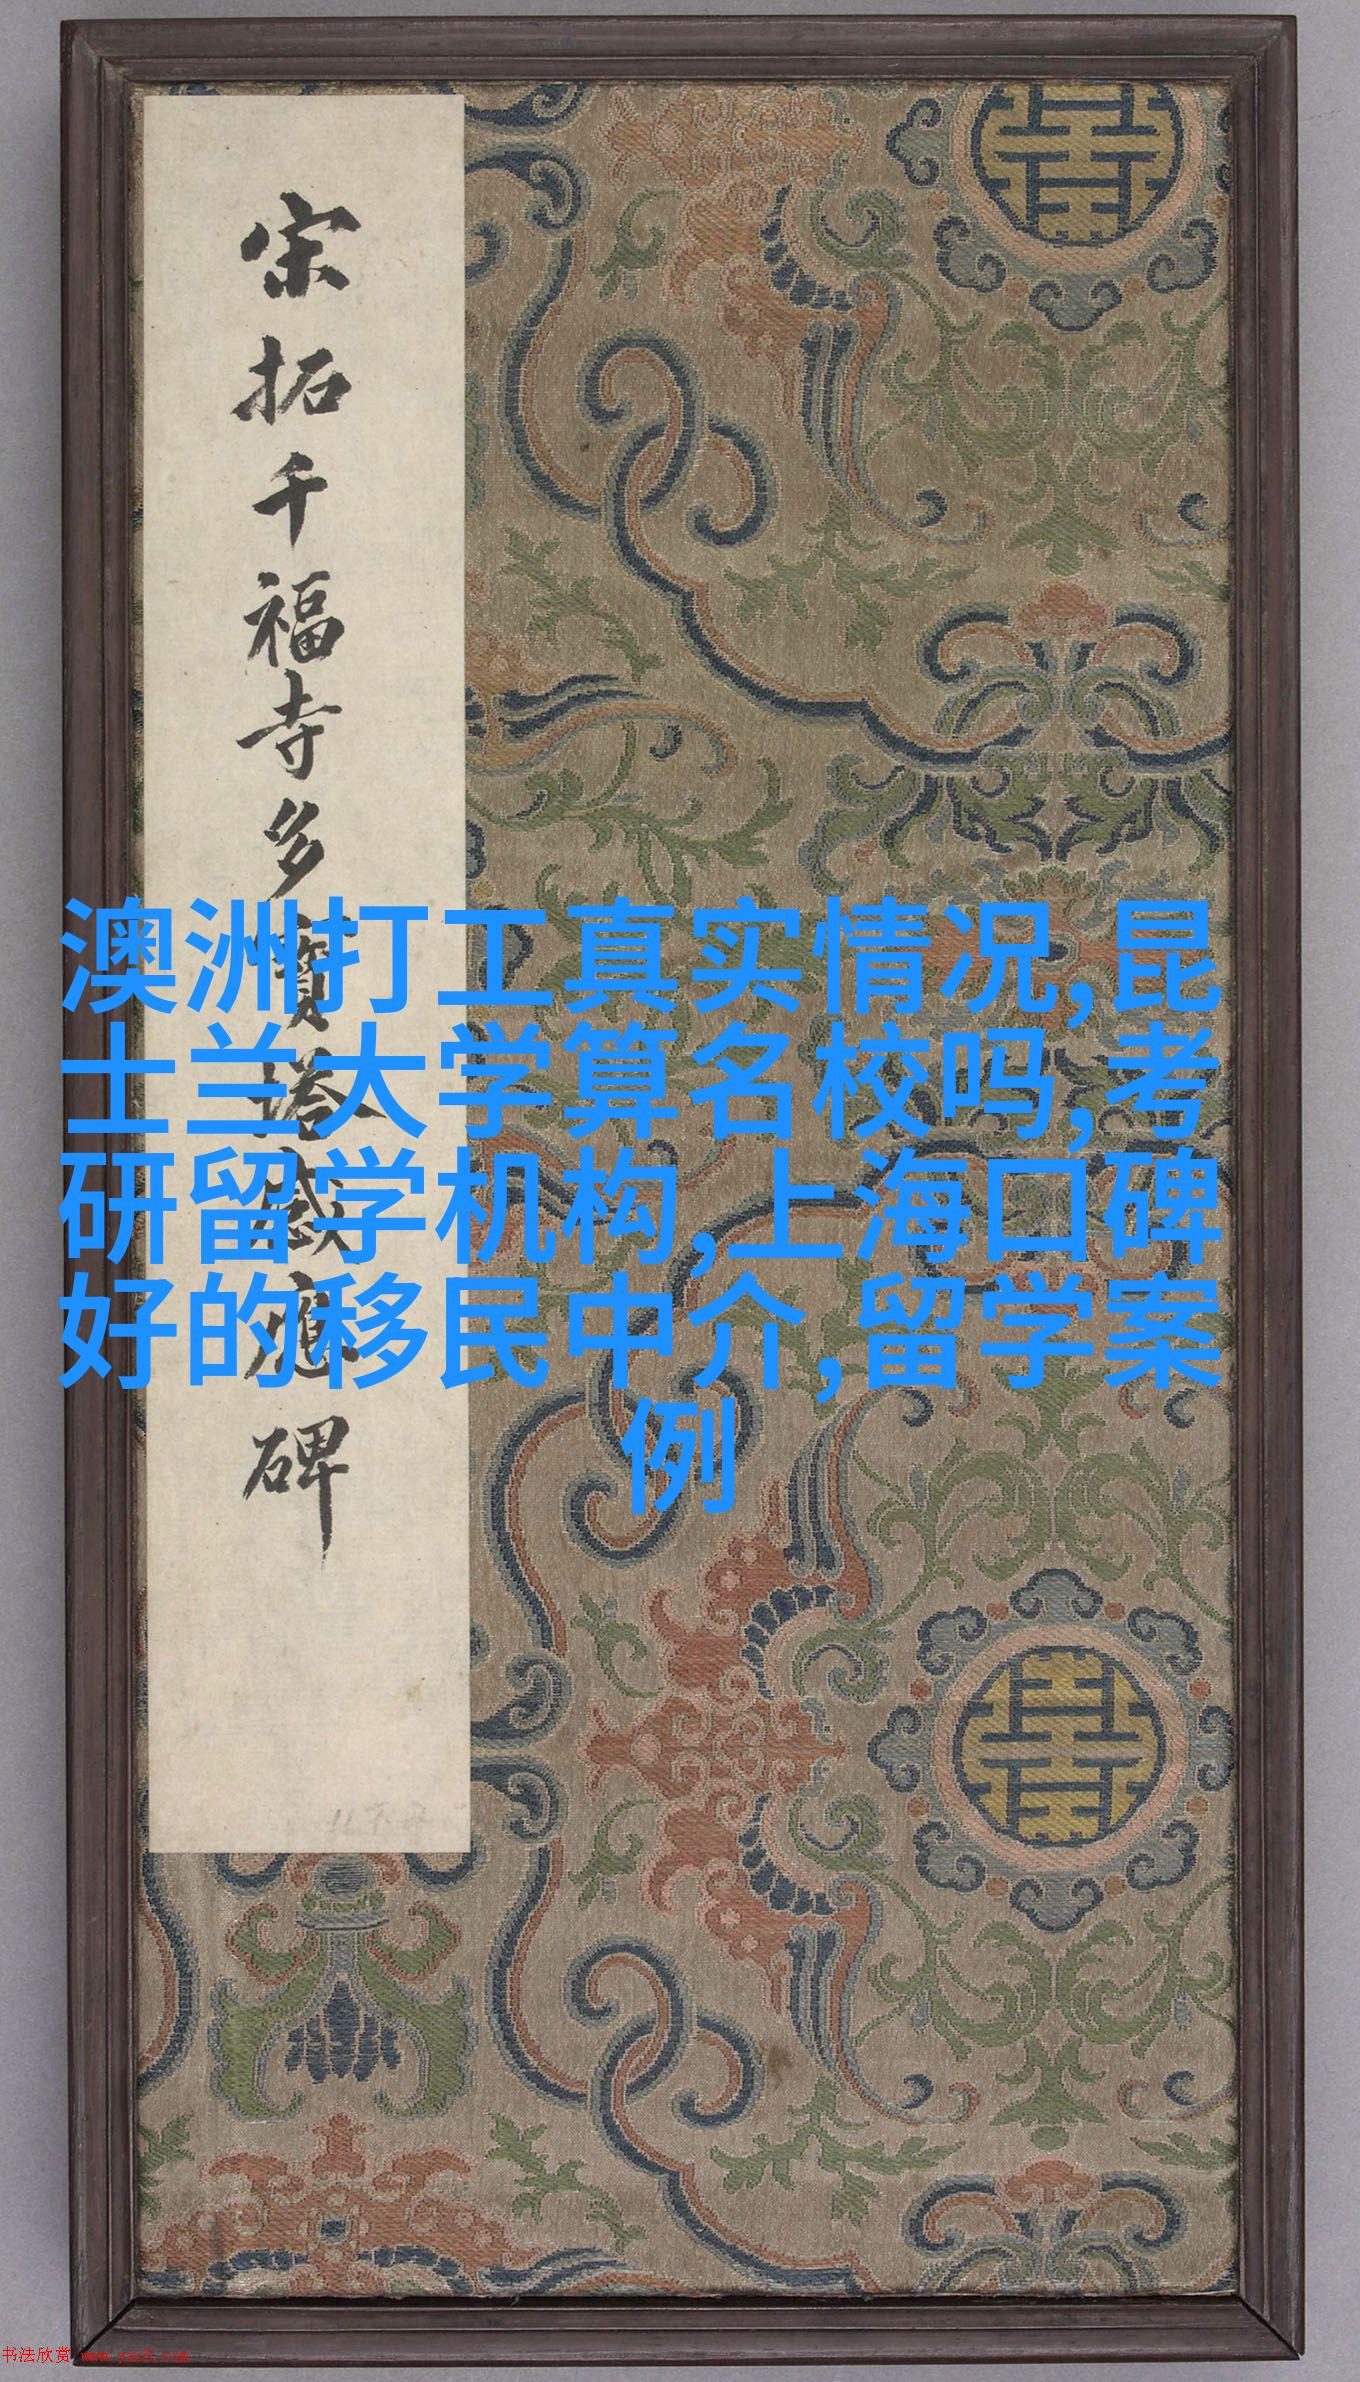 宋拓千福寺多寶塔感應碑
澳洲打工真实情况,昆
士兰大学算名校吗,考
研留学机构,上海口碑
好的移民中介,留学案
例
书法欣赏 www.yac8.com